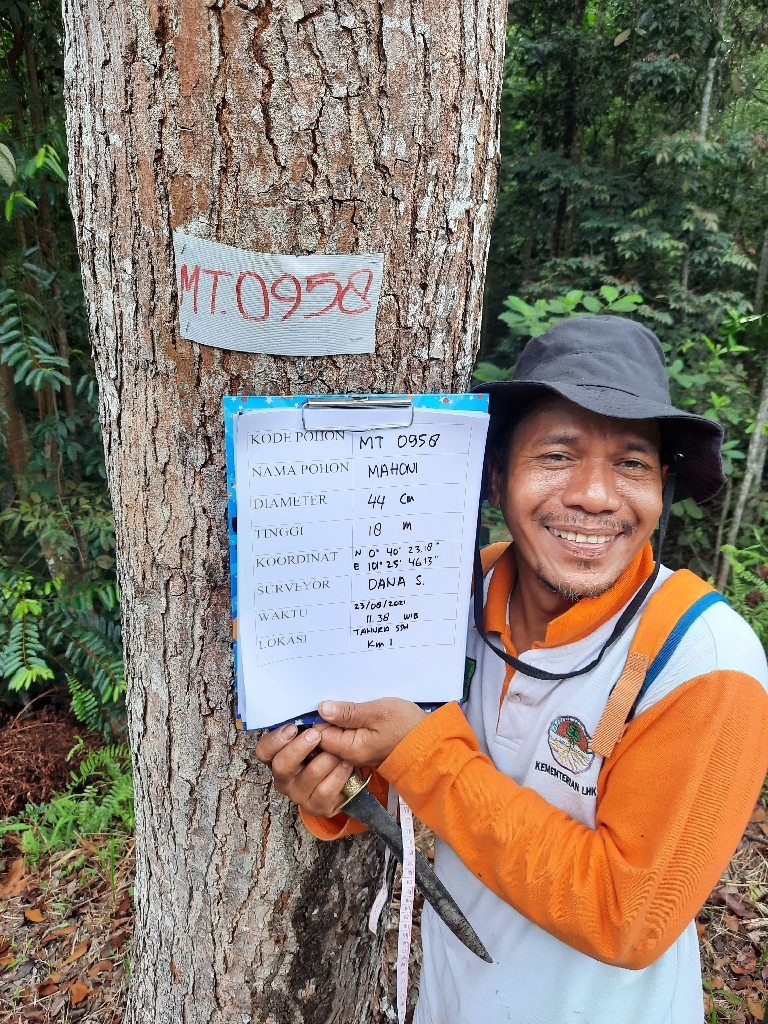 MT.0958
KODE POHON MT 0958
NAMA POHON MAHONI
DIAMETER 44 Cm
TINGGI 18 m
KOORDINAT N 0° 40' 23.18"
E 101° 25' 46.13"
SURVEYOR DANA S.
WAKTU 23/08/2021
11.38 WIB
LOKASI TAHURA SSH
Km 1
KEMENTERIAN LHK